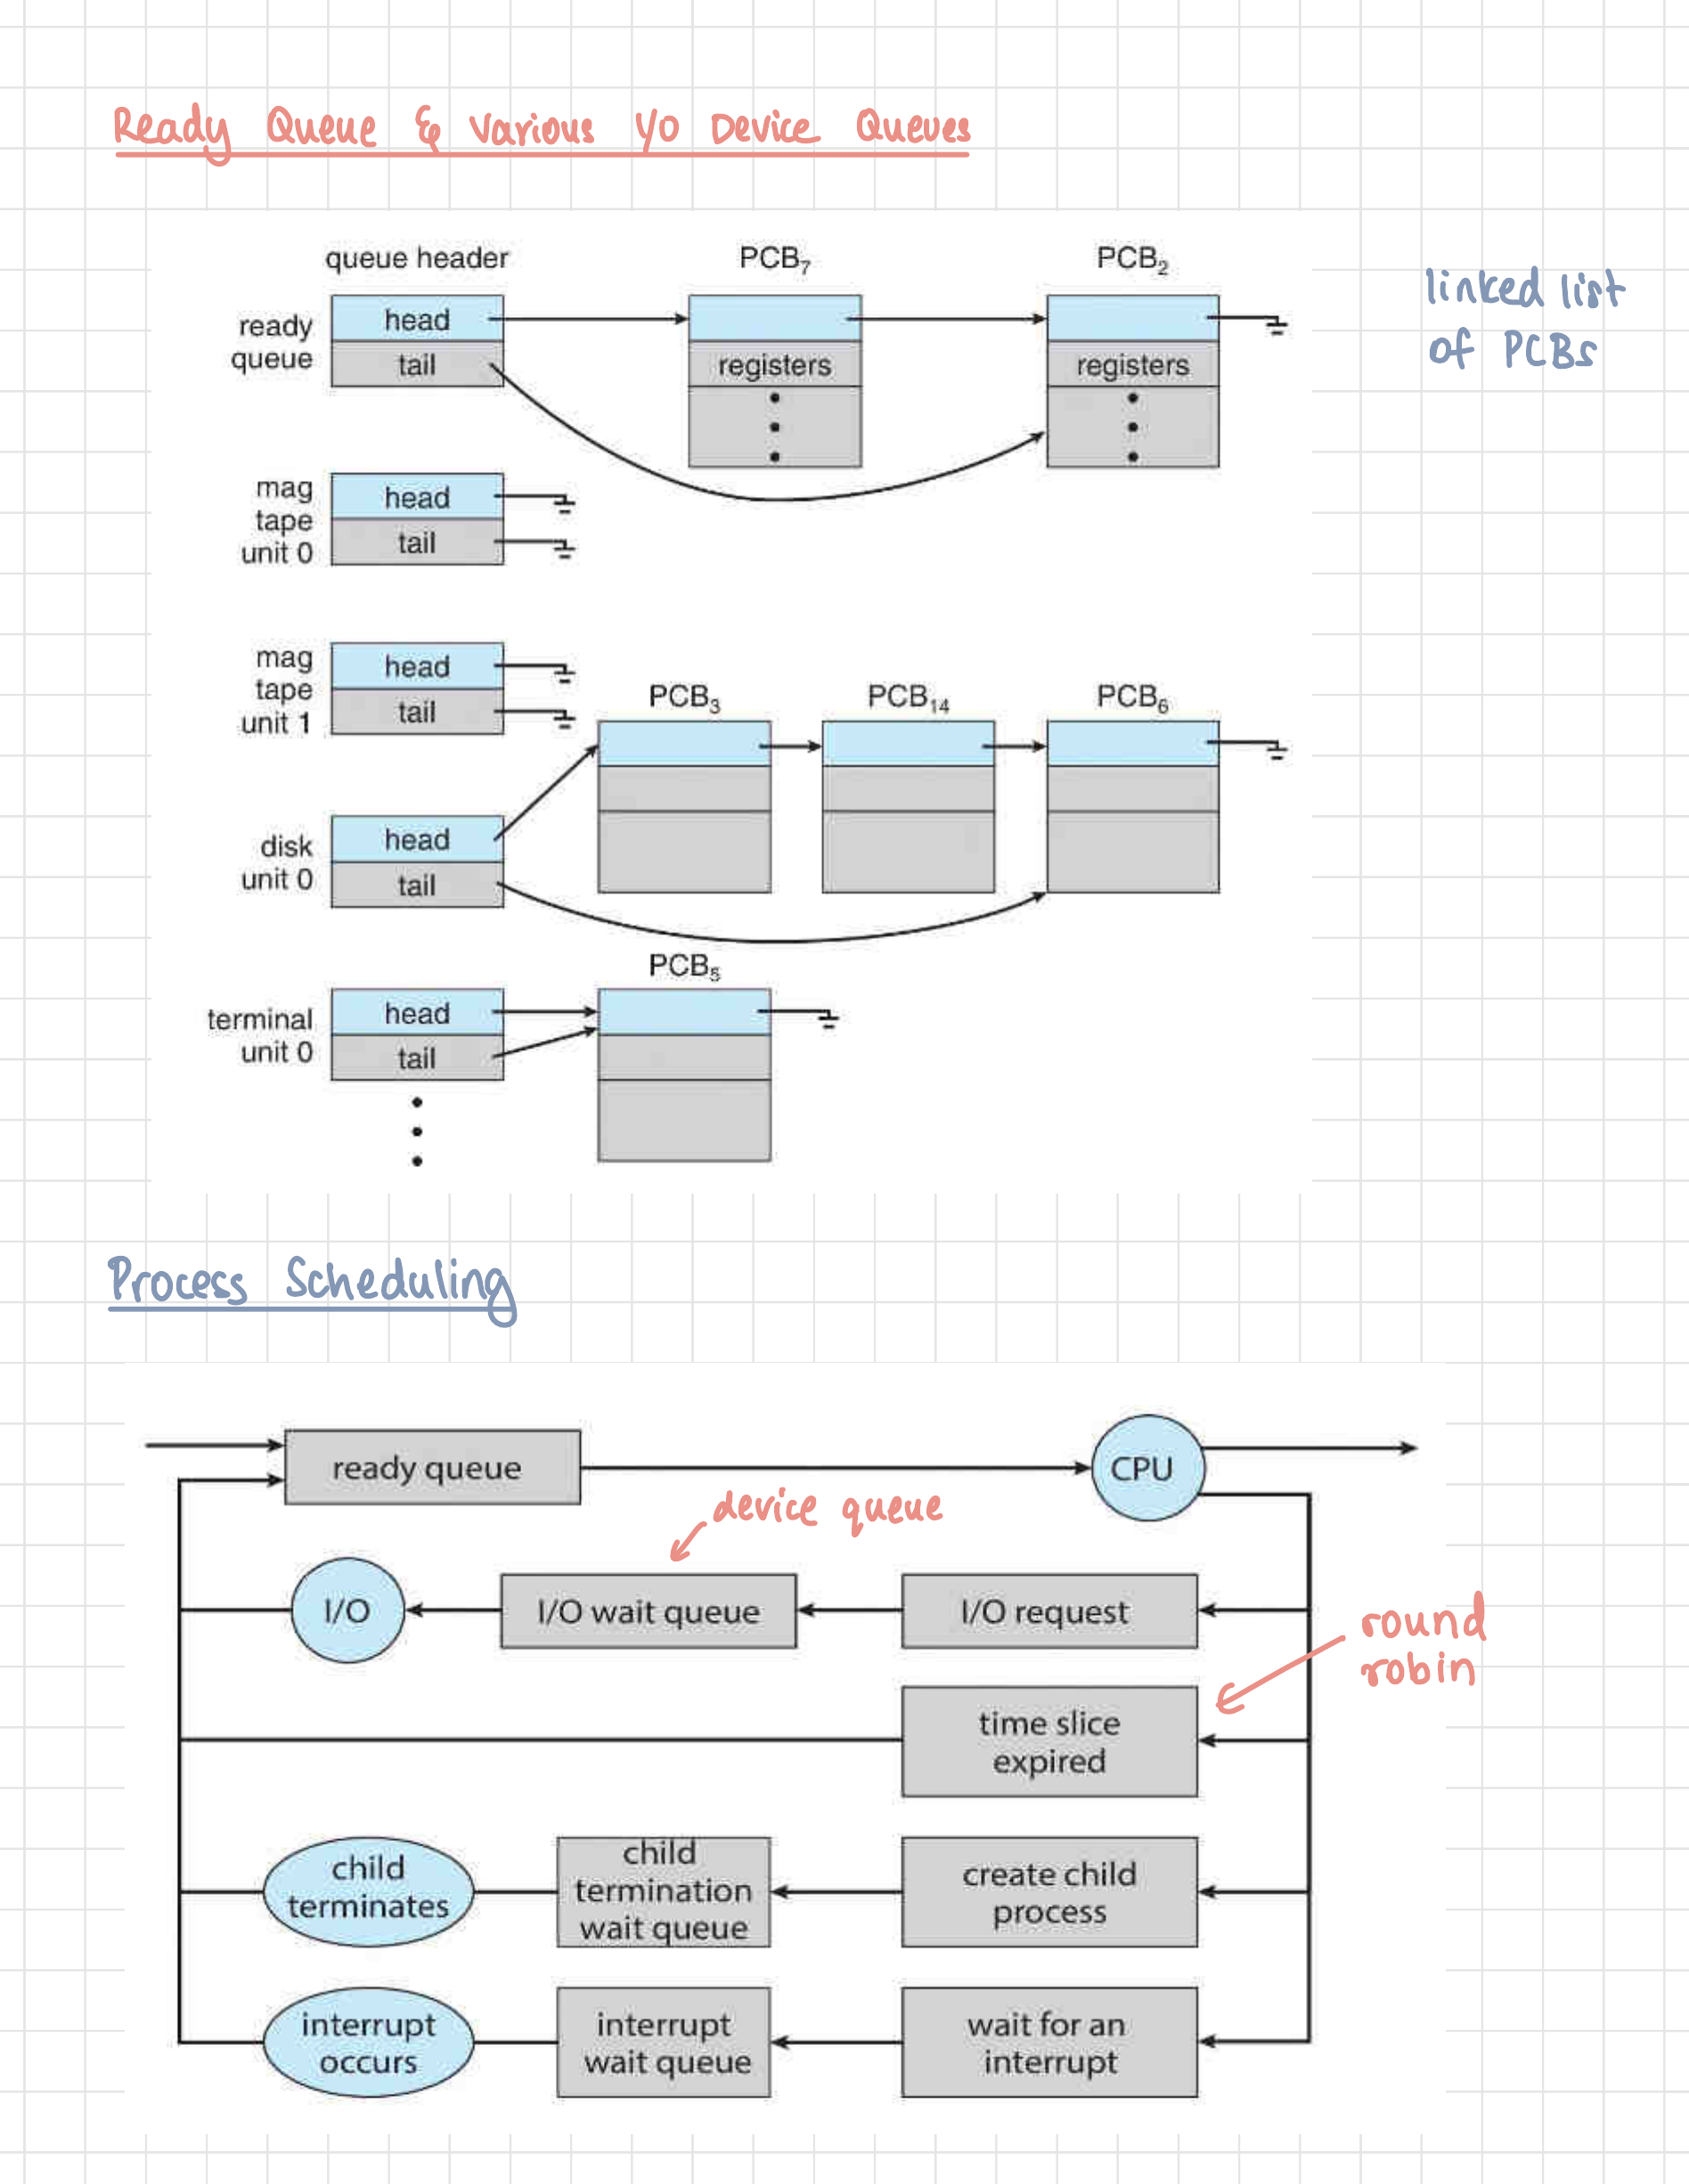 Ready Queue & Various I/O Device Queues
queue header
PCB₇
PCB₂
linked list
of PCBs
ready
queue
head
tail
registers
registers
mag
tape
unit 0
head
tail
mag
tape
unit 1
head
tail
PCB₃
PCB₁₄
PCB₆
disk
unit 0
head
tail
PCB₅
terminal
unit 0
head
tail
Process Scheduling
ready queue
CPU
device queue
I/O
I/O wait queue
I/O request
round
robin
time slice
expired
child
terminates
child
termination
wait queue
create child
process
interrupt
occurs
interrupt
wait queue
wait for an
interrupt